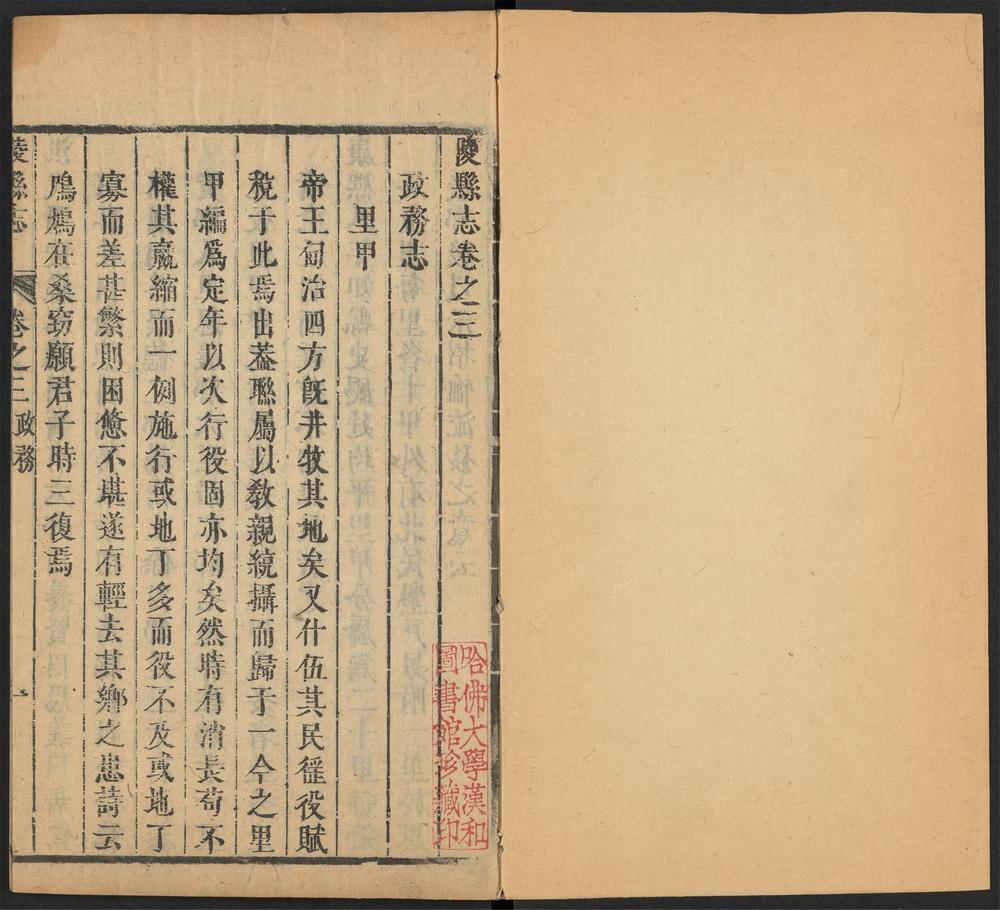 陵縣志卷之三
政務志
里甲
帝王甸治四方旣井牧其地矣又什伍其民徭役賦
稅于此焉出葢聯屬以敎親統攝而歸于一今之里
甲編爲定年以次行役固亦均矣然時有消長苟不
權其羸縮而一例施行或地丁多而役不及或地丁
寡而差甚繁則困憊不堪遂有輕去其鄉之患詩云
鳲鳩在桑窃願君子時三復焉
陵縣志 卷之三 政務 一
哈佛大學漢和
圖書館珍藏印